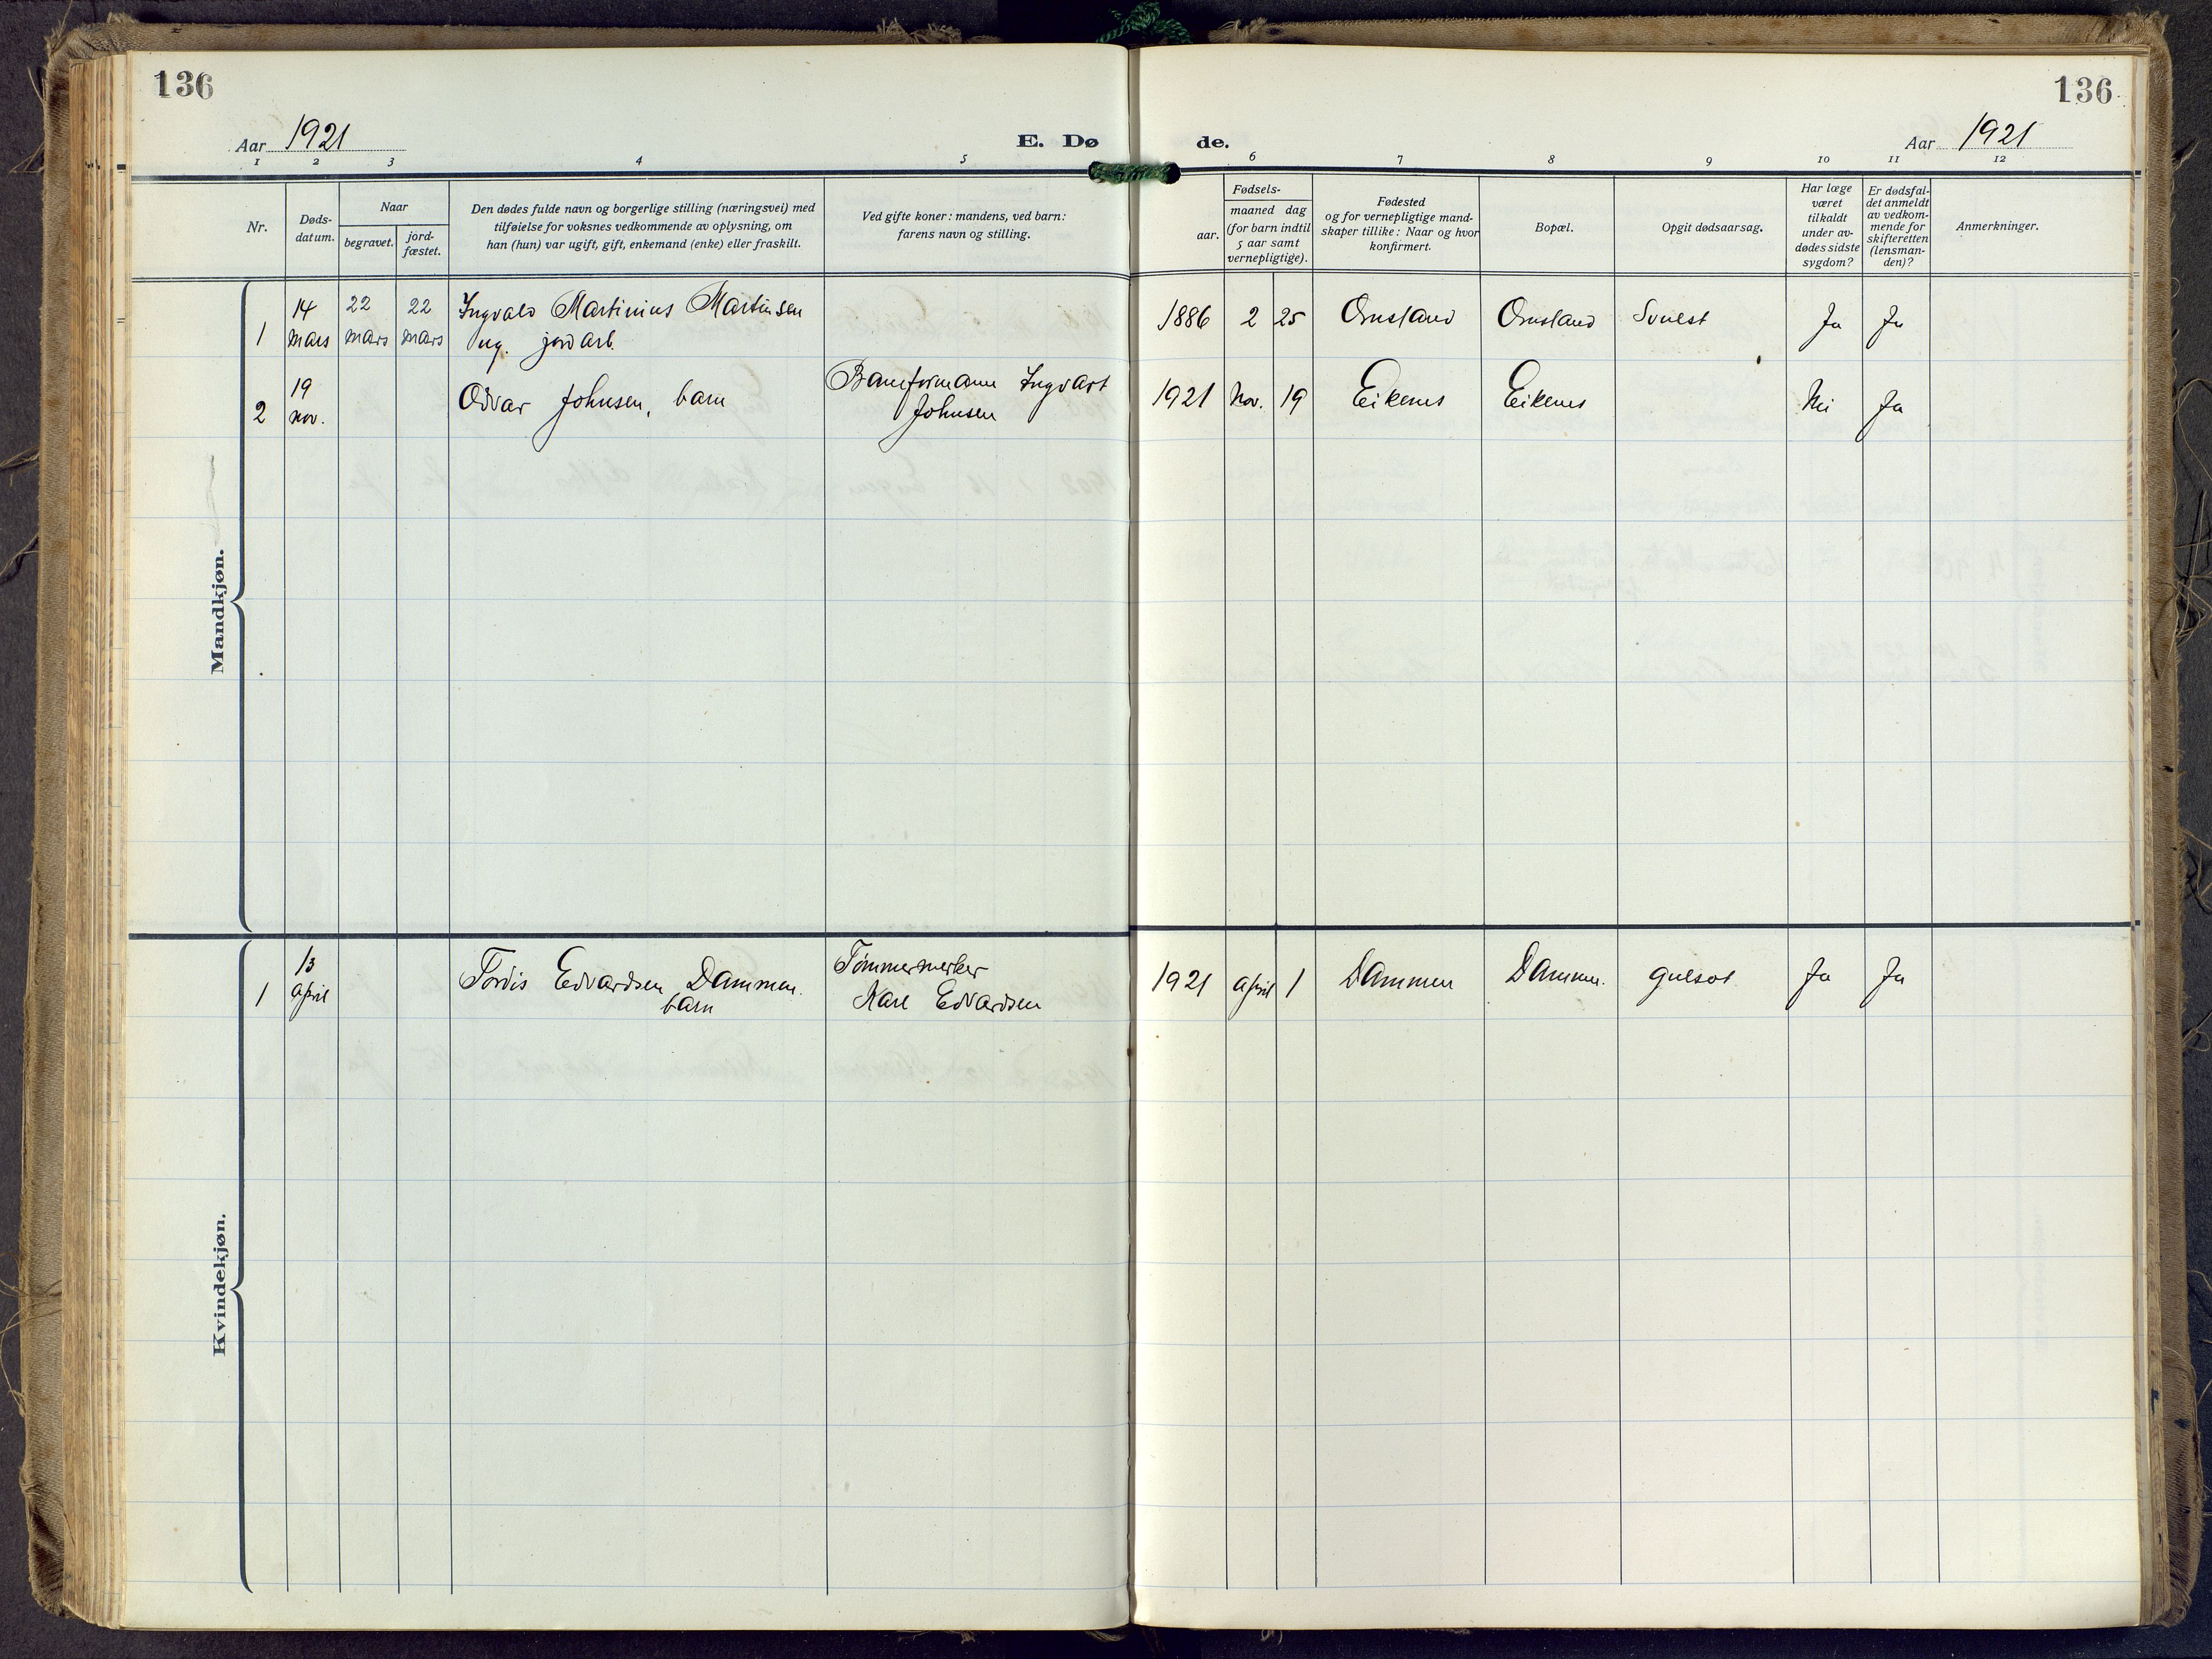 136
136
Aar 1921
E. Dø
de.
Aar 1921
1 2 3 4 5 6 7 8 9 10 11 12
Nr.
Døds-
datum.
Naar
begravet.
jord-
fæstet.
Den dødes fulde navn og borgerlige stilling (næringsvei) med
tilføielse for voksnes vedkommende av oplysning, om
han (hun) var ugift, gift, enkemand (enke) eller fraskilt.
Ved gifte koner: mandens, ved barn:
farens navn og stilling.
Fødsels-
aar.
maaned dag
(for barn indtil
5 aar samt
vernepligtige).
Fødested
og for vernepligtige mand-
skaper tillike: Naar og hvor
konfirmert.
Bopæl.
Opgit dødsaarsag.
Har læge
været
tilkaldt
under av-
dødes sidste
sygdom?
Er dødsfal-
det anmeldt
av vedkom-
mende for
skifteretten
(lensman-
den)?
Anmerkninger.
Mandkjøn.
14 22 22 Ingvald Martinius Martinsen
1 mars mars mars ug. jordarb.
1886 2 25 Ja Ja
19
2 nov.
Odvar Johnsen, barn
Ingvart
Johnsen
1921 Nov. 19 Eikenes Eikenes Nei Ja
Kvindekjøn.
13
1 april
Tordis Edvardsen Dammen.
barn
Tømmermerker
Karl Edvardsen
1921 april 1 Dammen Dammen. gulsot Ja Ja